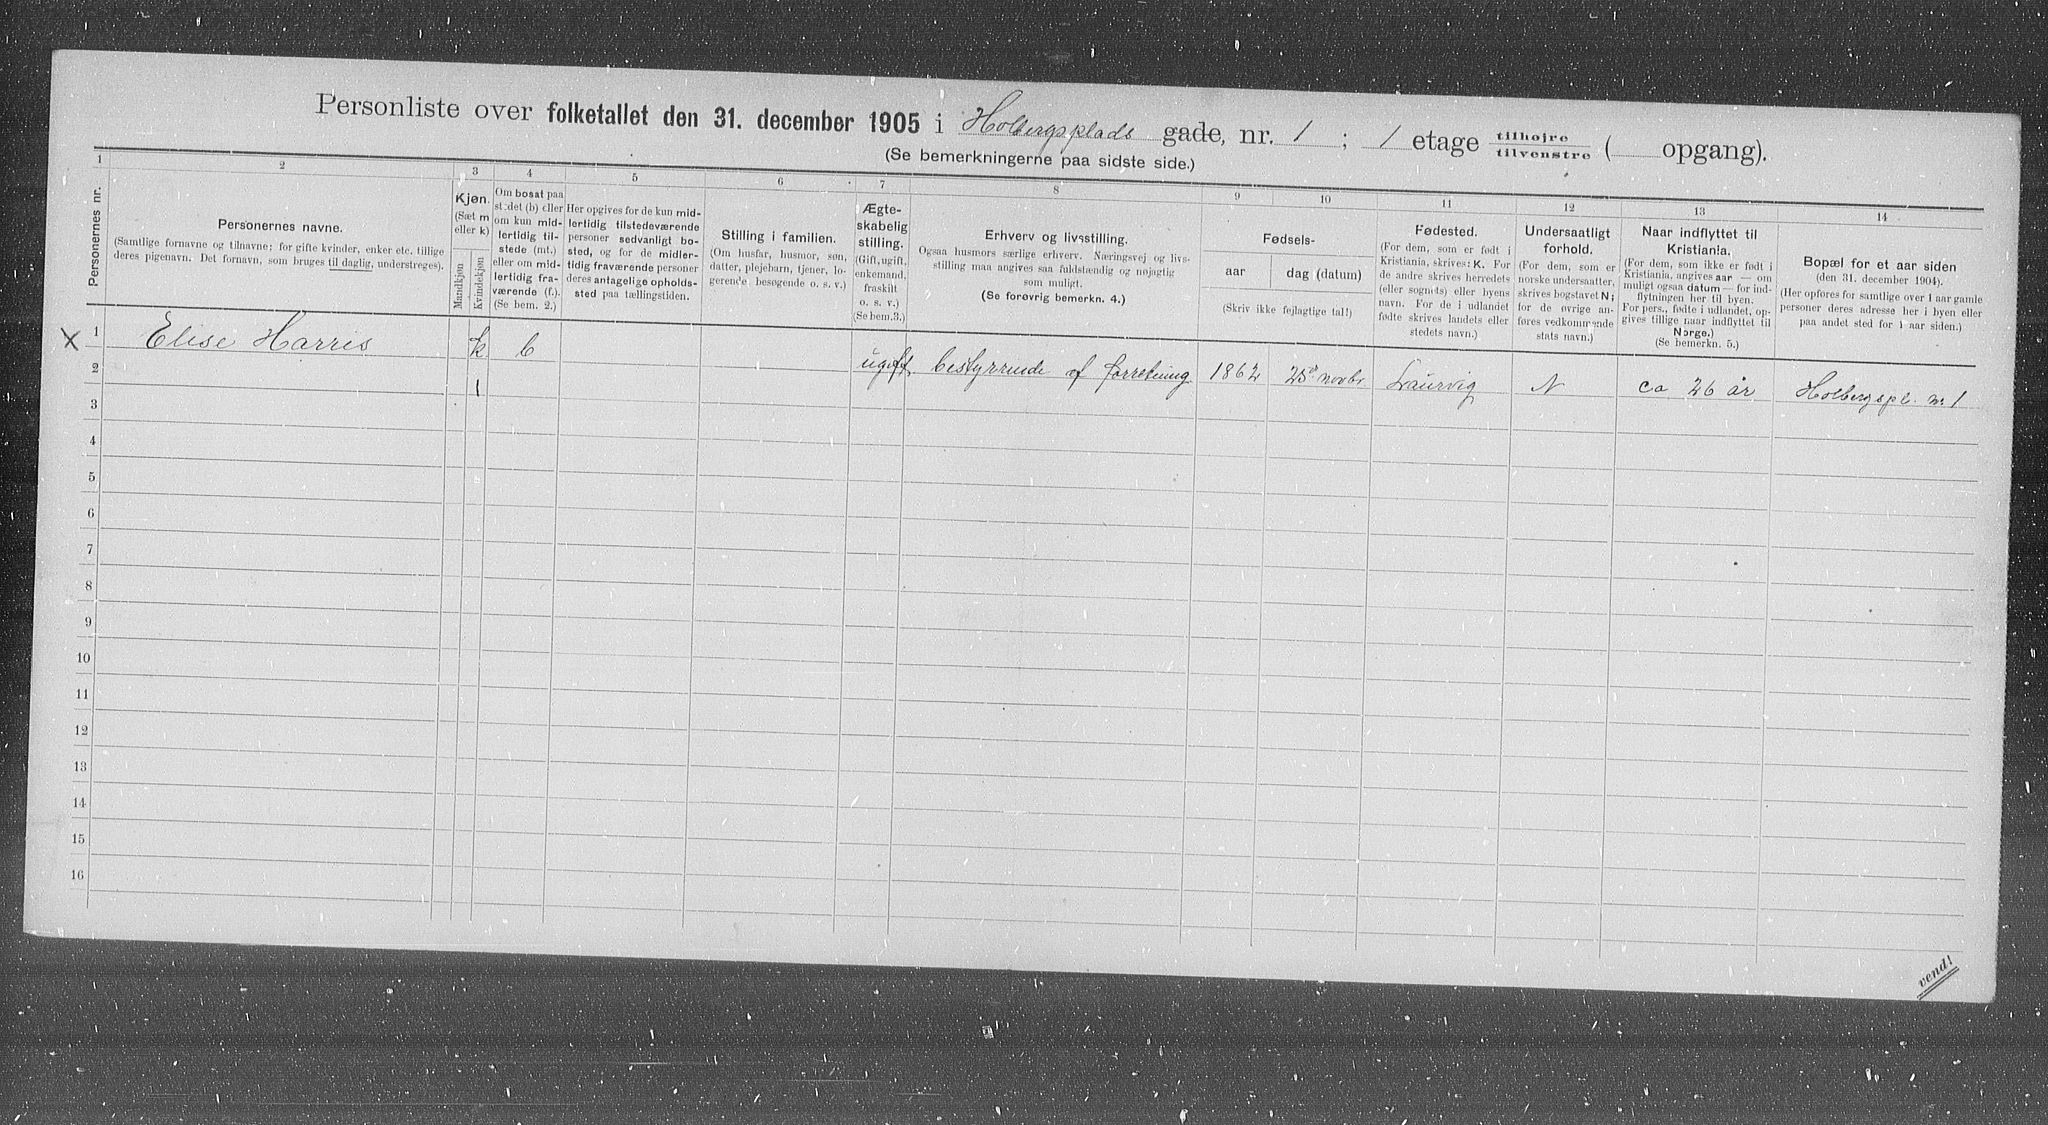 Personliste over folketallet den 31. december 1905 i Holbergsplads gade, nr. 1 ; 1 etage tilhøjre tilvenstre ( opgang).
(Se bemerkningerne paa sidste side.)
1 2 3 4 5 6 7 8 9 10 11 12 13 14
Personernes nr.
Personernes navne.
(Samtlige fornavne og tilnavne; for gifte kvinder, enker etc. tillige
deres pigenavn. Det fornavn, som bruges til daglig, understreges).
Kjøn.
(Sæt m
eller k)
Mandkjøn
Kvindekjøn
Om bosat paa
stedet (b) eller
om kun mid-
lertidig til-
stede (mt.)
eller om mid-
lertidig fra-
værende (f.).
(Se bem. 2.)
Her opgives for de kun mid-
lertidig tilstedeværende
personer sedvanligt bo-
sted, og for de midler-
tidig fraværende personer
deres antagelige opholds-
sted paa tællingstiden.
Stilling i familien.
(Om husfar, husmor, søn,
datter, plejebarn, tjener, lo-
gerende besøgende o. s. v.)
Ægte-
skabelig
stilling.
(Gift, ugift,
enkemand,
fraskilt
o. s. v.)
(Se bem.3.)
Erhverv og livsstilling.
Ogsaa husmors særlige erhverv. Næringsvej og livs-
stilling maa angives saa fuldstændig og nøjagtig
som muligt.
(Se forøvrig bemerkn. 4.)
Fødsels-
aar
dag (datum)
(Skriv ikke fejlagtige tal!)
Fødested.
(For dem, som er født i
Kristiania, skrives: K. For
de andre skrives herredets
(eller sognets) eller byens
navn. For de i udlandet
fødte skrives landets eller
stedets navn.)
Undersaatligt
forhold.
(For dem, som er
norske undersaatter,
skrives bogstavet N;
for de øvrige an-
føres vedkommende
stats navn.)
Naar indflyttet til
Kristiania.
(For dem, som ikke er født i
Kristiania, angives aar — om
muligt ogsaa datum — for ind-
flytningen her til byen.
For pers., fødte i udlandet, op-
gives tillige naar indflyttet til
Norge.)
(Se bemerkn. 5.)
Bopæl for et aar siden
(den 31. december 1904).
(Her opføres for samtlige over 1 aar gamle
personer deres adresse her i byen eller
paa andet sted for 1 aar siden.)
X 1 Elise Harris k b ugift bestyrende af forretning 1862 25d novbr Laurvig N ca 26 år Holbergspl. nr 1
2 1
3
4
5
6
7
8
9
10
11
12
13
14
15
16
vend!